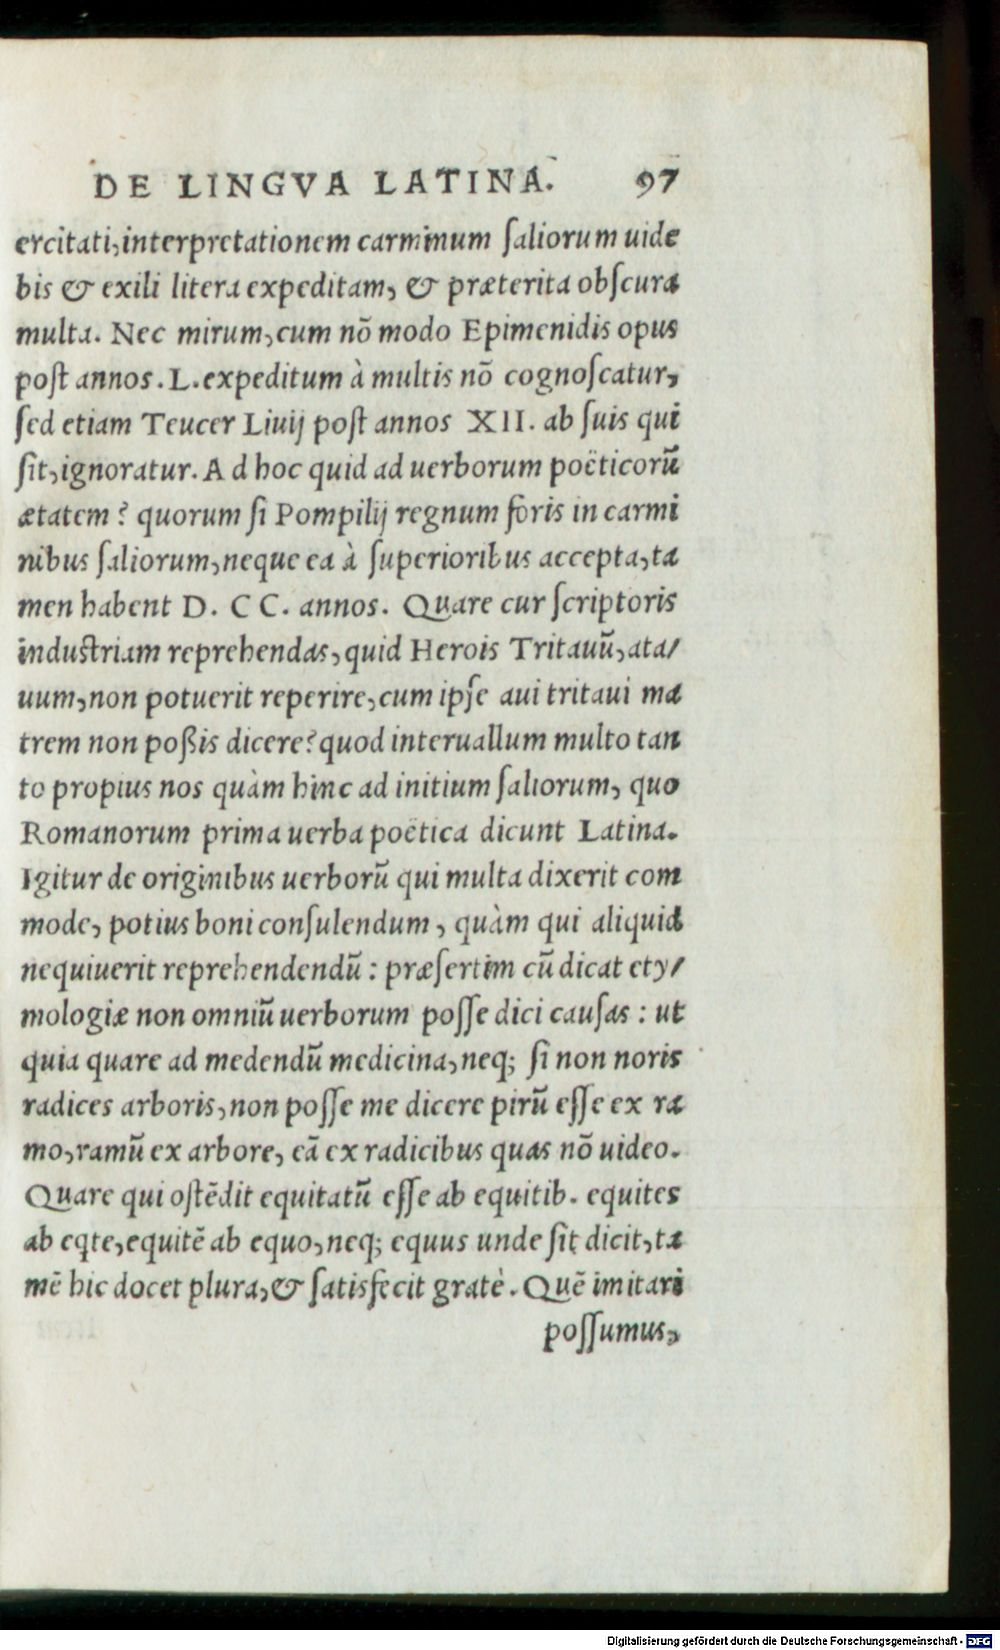 DE LINGVA LATINA. 97
ercitati, interpretationem carminum ſaliorum uide
bis & exili litera expeditam, & præterita obſcura
multa. Nec mirum, cum nō modo Epimenidis opus
poſt annos. L. expeditum à multis nō cognoſcatur,
ſed etiam Teucer Liuij poſt annos XII. ab ſuis qui
ſit, ignoratur. Ad hoc quid ad uerborum poëticorū
ætatem? quorum ſi Pompilij regnum foris in carmi
nibus ſaliorum, neque ea à ſuperioribus accepta, ta
men habent D. CC. annos. Quare cur ſcriptoris
induſtriam reprehendas, quid Herois Tritauū, ata/
uum, non potuerit reperire, cum ipſe aui tritaui ma
trem non poßis dicere? quod interuallum multo tan
to propius nos quàm hinc ad initium ſaliorum, quo
Romanorum prima uerba poëtica dicunt Latina.
Igitur de originibus uerborū qui multa dixerit com
mode, potius boni conſulendum, quàm qui aliquid
nequiuerit reprehendendū: præſertim cū dicat ety/
mologiæ non omniū uerborum poſſe dici cauſas: ut
quia quare ad medendū medicina, neq; ſi non noris
radices arboris, non poſſe me dicere pirū eſſe ex ra
mo, ramū ex arbore, eā ex radicibus quas nō uideo.
Quare qui oſtēdit equitatū eſſe ab equitib. equites
ab eqte, equitē ab equo, neq; equus unde ſit dicit, ta
mē hic docet plura, & ſatisfecit gratè. Quē imitari
poſſumus,
Digitalisierung gefördert durch die Deutsche Forschungsgemeinschaft - DFG